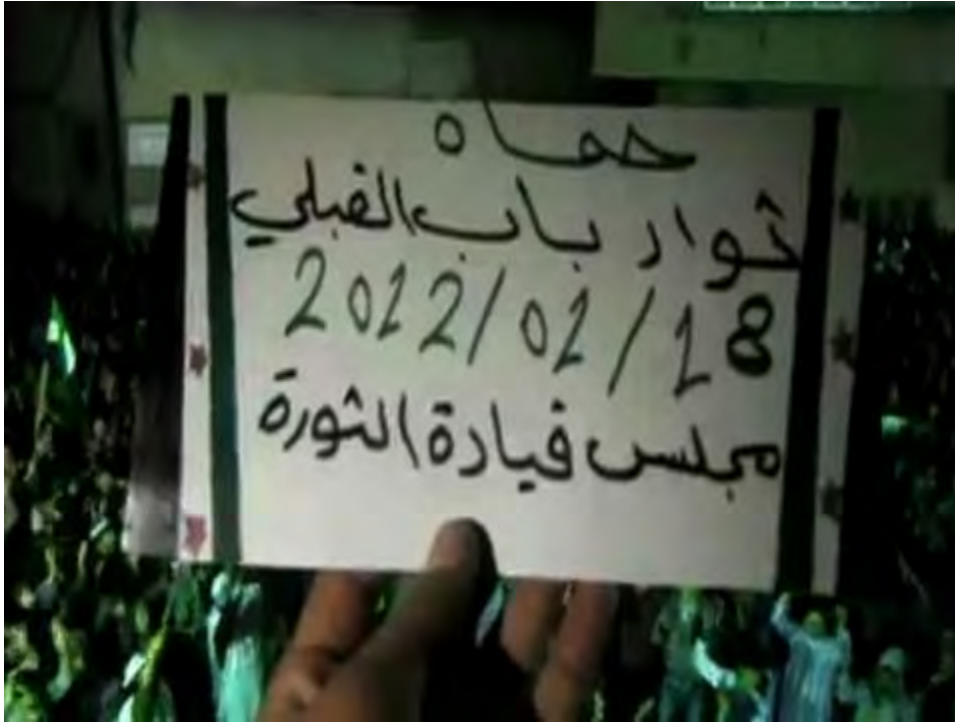 حماه
ثوار باب القبلي
2012/01/18
مجلس قيادة الثورة